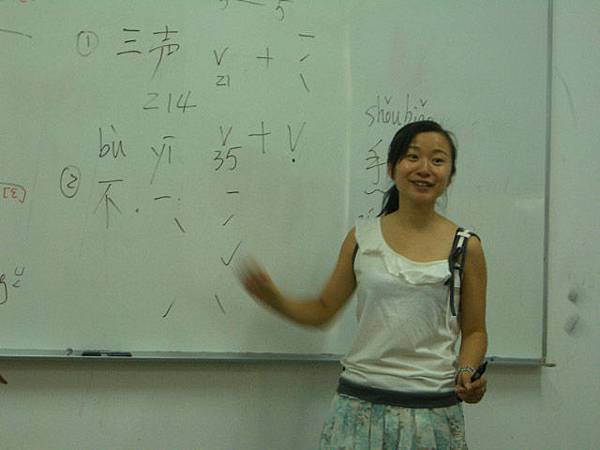 5
① 三声 ˇ + ˉ
21 ˊ
214 ˋ
bù yī ˇ + ˇ
35
② 不 . 一 ˋ ˉ
ˊ
ˇ
ˊ ˋ
shǒubiǎo
手
[ɛ]